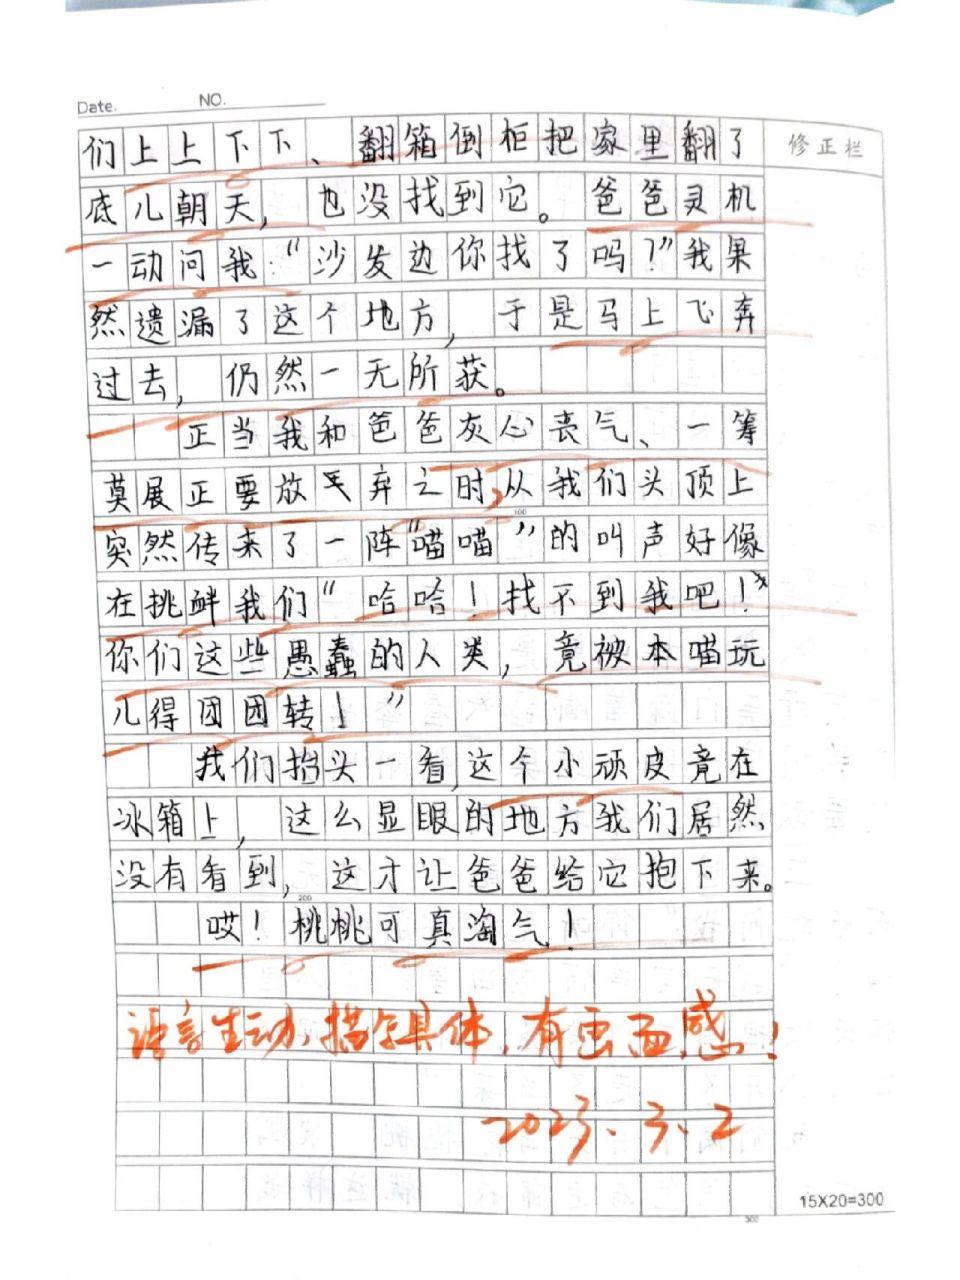 Date. NO.
修正栏
们上上下下、翻箱倒柜把家里翻了
底儿朝天，也没找到它。爸爸灵机
一动问我：“沙发边你找了吗？”我果
然遗漏了这个地方，于是马上飞奔
过去，仍然一无所获。
正当我和爸爸灰心丧气、一筹
莫展正要放弃之时，从我们头顶上
100
突然传来了一阵“喵喵”的叫声好像
在挑衅我们“哈哈！找不到我吧！”
你们这些愚蠢的人类，竟被本喵玩
儿得团团转！”
我们抬头一看，这个小顽皮竟在
冰箱上，这么显眼的地方我们居然
没有看到，这才让爸爸给它抱下来。
200
哎！桃桃可真淘气！
语言生动，描写具体，有画面感！
2023.3.2
15X20=300
300